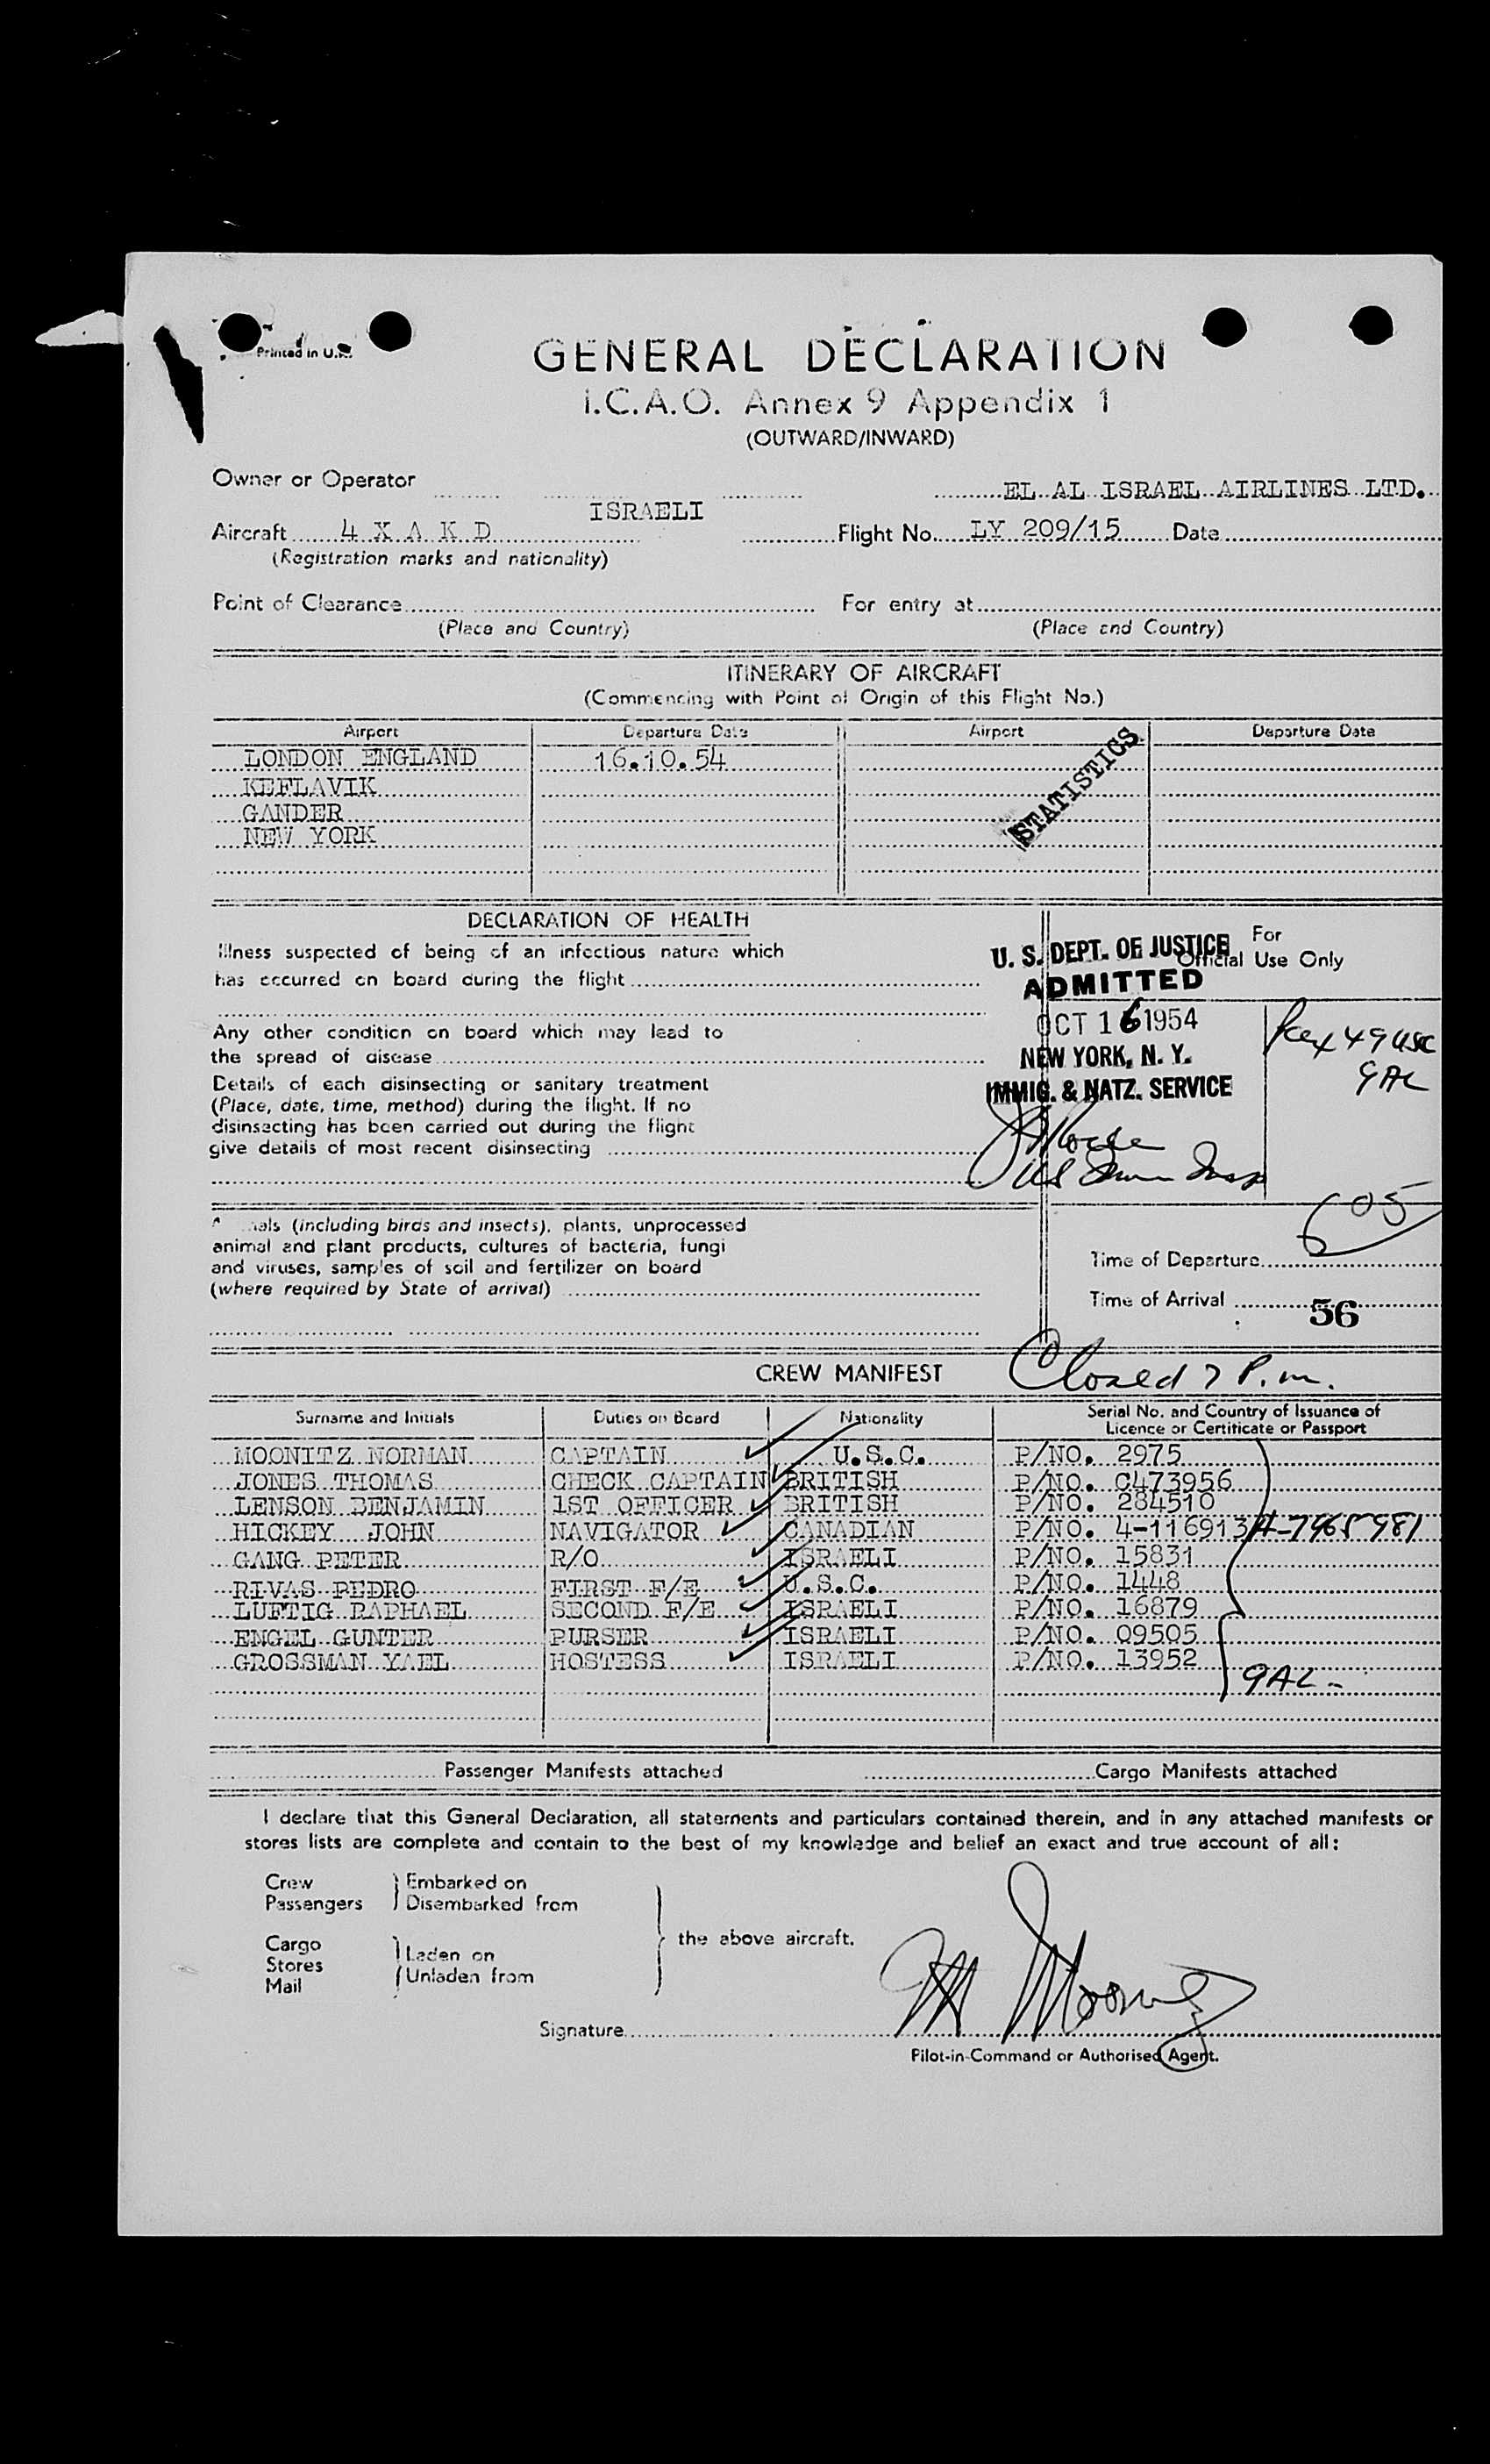 Printed in U.K.
GENERAL DECLARATION
I.C.A.O. Annex 9 Appendix 1
(OUTWARD/INWARD)
Owner or Operator EL AL ISRAEL AIRLINES LTD.
ISRAELI
Aircraft 4 X A K D Flight No. LY 209/15 Date
(Registration marks and nationality)
Point of Clearance For entry at
(Place and Country) (Place and Country)
ITINERARY OF AIRCRAFT
(Commencing with Point of Origin of this Flight No.)
Airport Departure Date Airport Departure Date
LONDON ENGLAND 16.10.54
KEFLAVIK
GANDER
NEW YORK
STATISTICS
DECLARATION OF HEALTH
Illness suspected of being of an infectious nature which
has occurred on board during the flight
Any other condition on board which may lead to
the spread of disease
Details of each disinsecting or sanitary treatment
(Place, date, time, method) during the flight. If no
disinsecting has been carried out during the flight
give details of most recent disinsecting
For
Official Use Only
U. S. DEPT. OF JUSTICE
ADMITTED
OCT 16 1954
NEW YORK, N. Y.
IMMIG. & NATZ. SERVICE
49 USC
9 AL
als (including birds and insects), plants, unprocessed
animal and plant products, cultures of bacteria, fungi
and viruses, samples of soil and fertilizer on board
(where required by State of arrival)
605
Time of Departure
Time of Arrival 56
CREW MANIFEST Closed 7 P.m.
Surname and Initials Duties on Board Nationality Serial No. and Country of Issuance of
Licence or Certificate or Passport
MOONITZ NORMAN CAPTAIN U.S.C. P/NO. 2975
JONES THOMAS CHECK CAPTAIN BRITISH P/NO. C473956
LENSON BENJAMIN 1ST OFFICER BRITISH P/NO. 284510
HICKEY JOHN NAVIGATOR CANADIAN P/NO. 4-116913 A-7965981
GANG PETER R/O ISRAELI P/NO. 15831
RIVAS PEDRO FIRST F/E U.S.C. P/NO. 1448
LUFTIG RAPHAEL SECOND F/E ISRAELI P/NO. 16879
ENGEL GUNTER PURSER ISRAELI P/NO. 09505
GROSSMAN YAEL HOSTESS ISRAELI P/NO. 13952
9AL -
Passenger Manifests attached Cargo Manifests attached
I declare that this General Declaration, all statements and particulars contained therein, and in any attached manifests or
stores lists are complete and contain to the best of my knowledge and belief an exact and true account of all:
Crew Embarked on
Passengers Disembarked from
the above aircraft.
Cargo
Stores Laden on
Mail Unladen from
Signature
Pilot-in-Command or Authorised Agent.